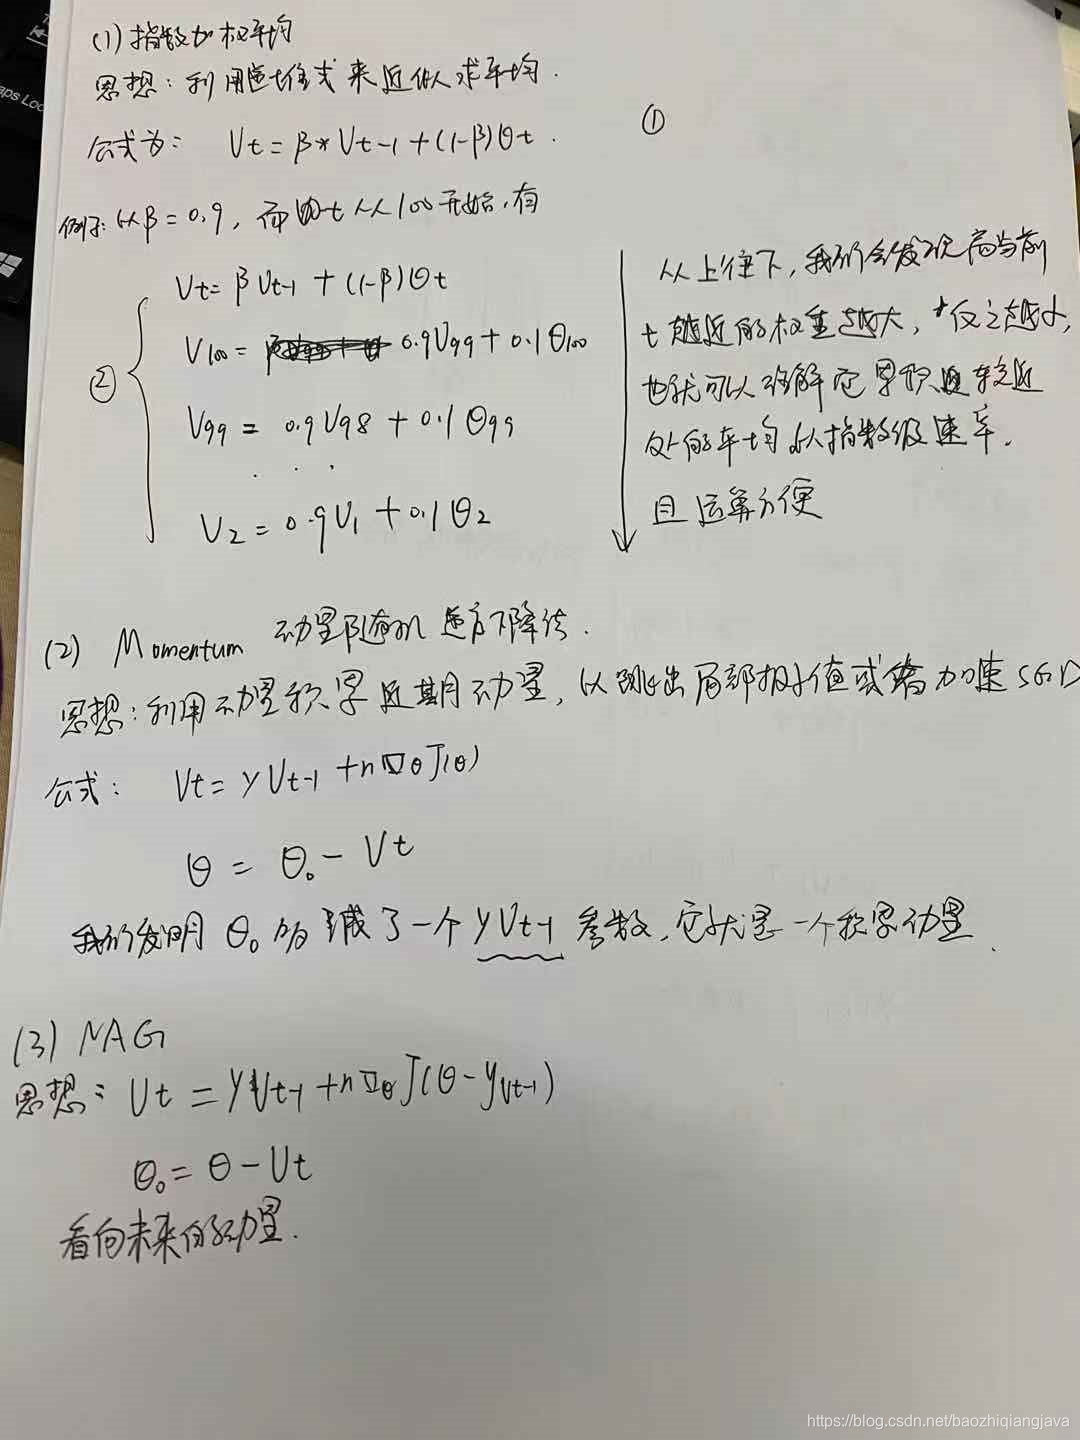 (1) 指数加权平均
思想：利用递推式来近似求平均．
①
公式为： Vt = β* Vt-1 + (1-β)θt .
例子：以β = 0.9，而 t 从100开始，有
Vt = β Vt-1 + (1-β)θt
V100 = 0.9V99 + 0.1θ100
②
V99 = 0.9V98 + 0.1θ99
. . .
V2 = 0.9V1 + 0.1θ2
从上往下，我们会发现离当前
t 越近的权重越大，反之越小，
也就可以理解它累积 较近
处的平均以指数级速率．
且运算方便
(2) Momentum 动量随机 下降法．
思想：利用动量积累近期动量，以跳出局部极小值或 加速SGD
公式： Vt = γVt-1 + η∇θJ(θ)
θ = θ0 - Vt
我们发明 θ0 减了一个 γVt-1 参数，它就是一个积累动量．
(3) NAG
思想： Vt = γVt-1 + η∇θJ(θ - γVt-1)
θ0 = θ - Vt
看向未来的动量．
https://blog.csdn.net/baozhiqiangjava